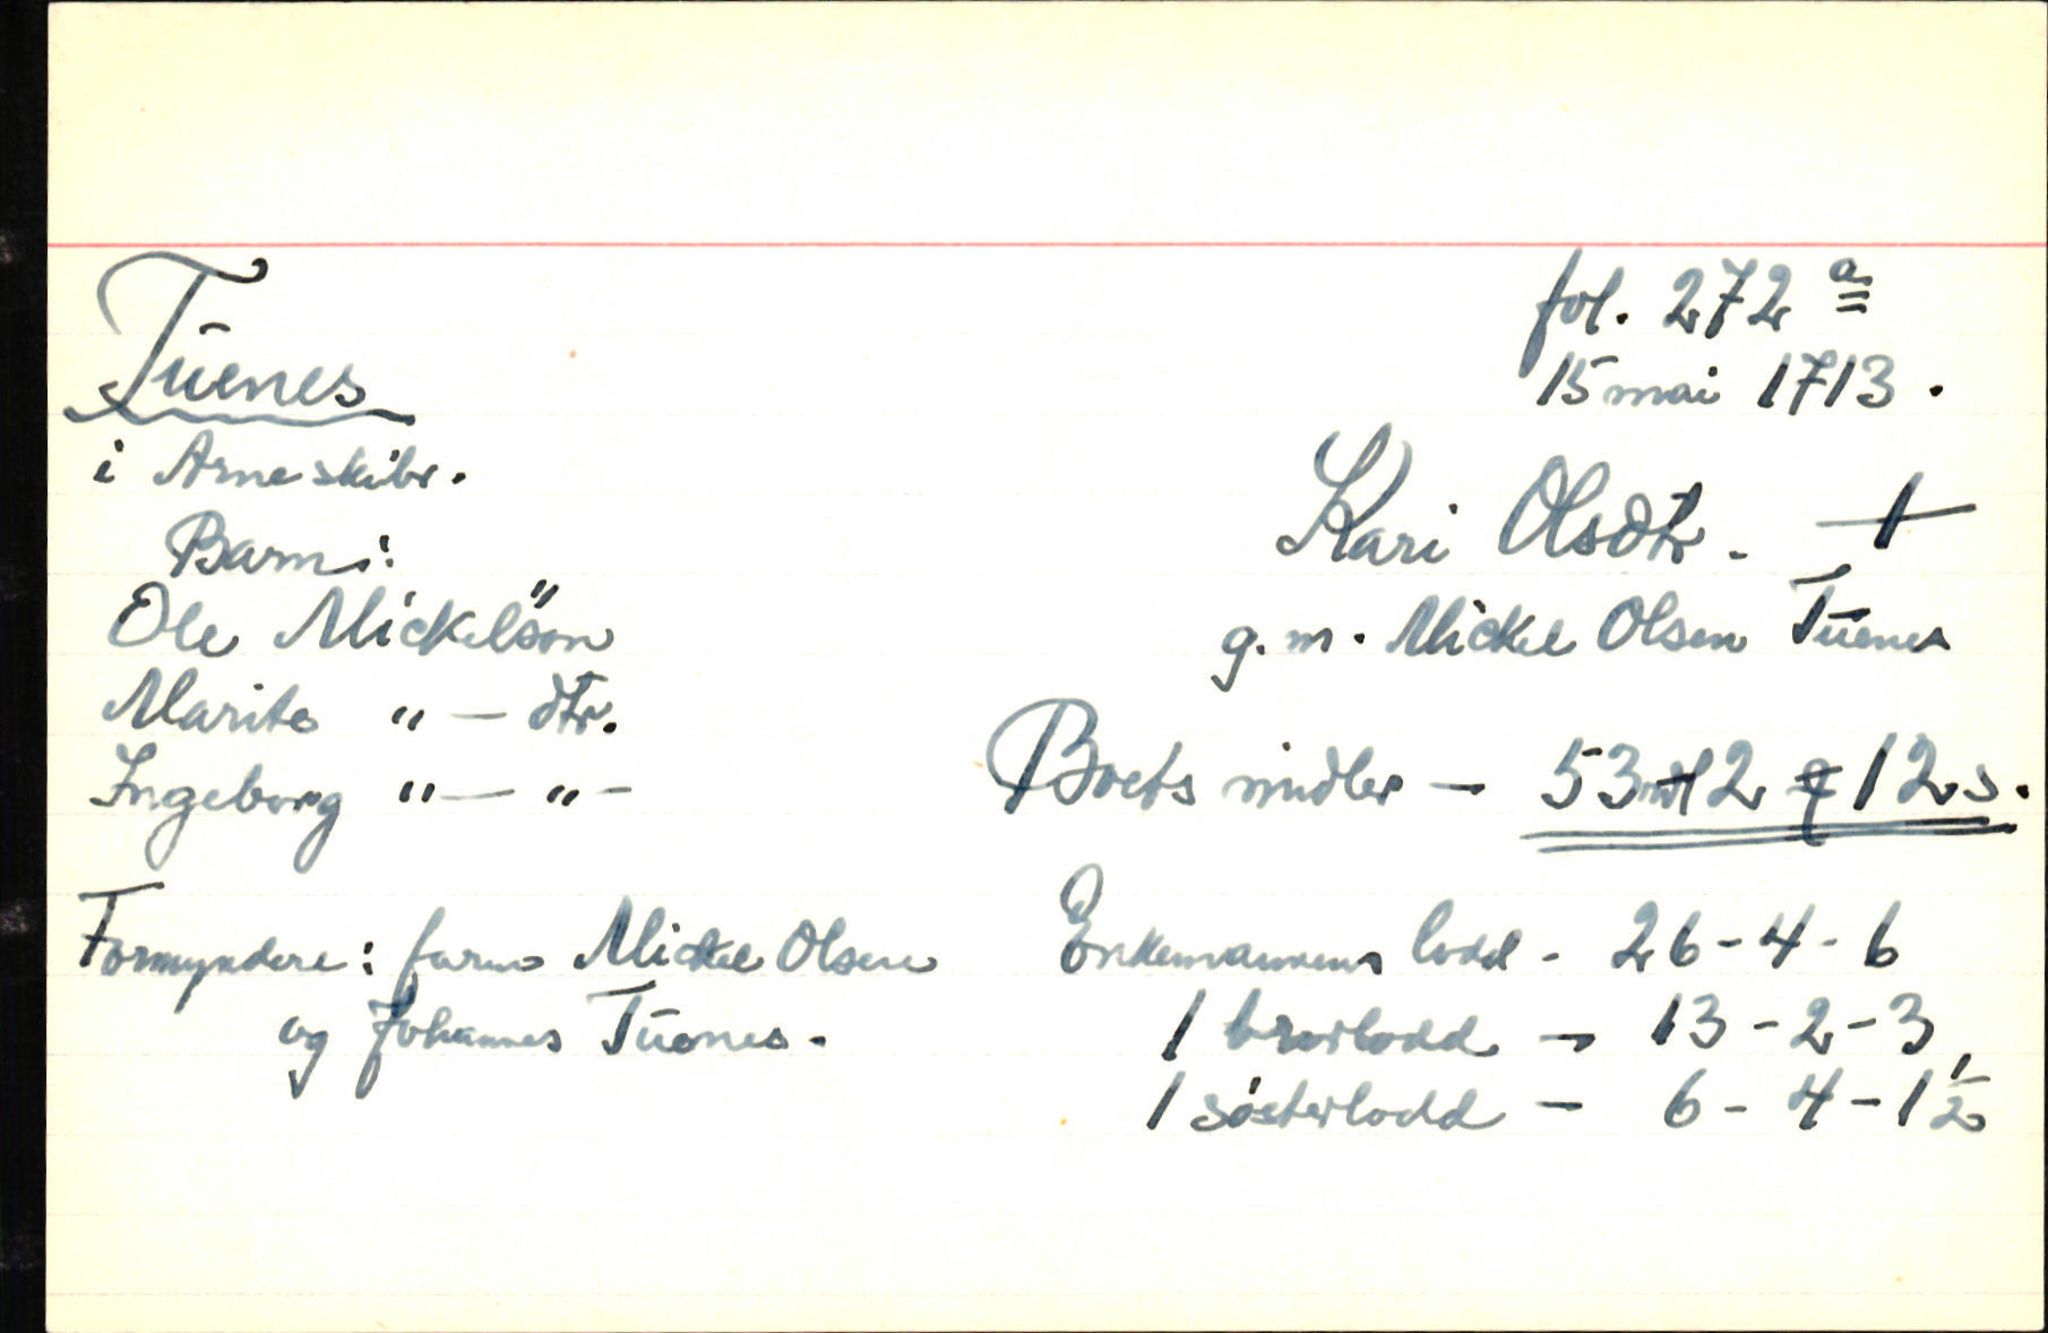 Tūenes
i Arne skibr.
Barn:
Ole Mickelsøn
Marite " — dtr.
Ingeborg " — " –
Formyndere: faren Mickel Olsen
og Johannes Tūenes.
fol. 272 a
15 mai 1713.
Kari Olsdtr. †
g. m. Mickel Olsen Tūenes
Boets midler — 53 mtl 2 q 12 s.
Enkemannens lodd - 26 - 4 - 6
1 brorlodd — 13 - 2 - 3
1 søsterlodd — 6 - 4 - 1 1/2